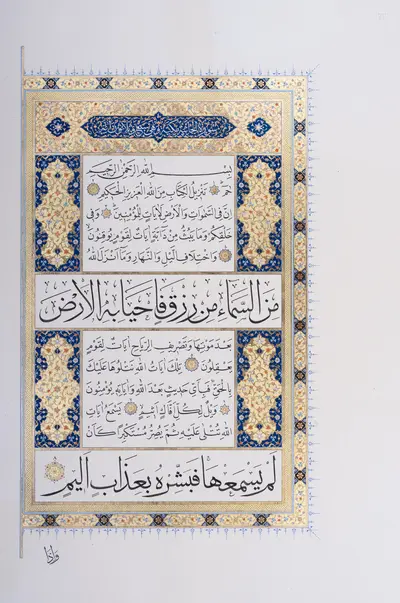 بِسْمِ اللهِ الرَّحْمٰنِ الرَّحِيمِ
حٰمٓ تَنْزِيلُ الْكِتَابِ مِنَ اللهِ الْعَزِيزِ الْحَكِيمِ
اِنَّ فِي السَّمٰوَاتِ وَالْاَرْضِ لَاٰيَاتٍ لِلْمُؤْمِنِينَ وَفِي
خَلْقِكُمْ وَمَا يَبُثُّ مِنْ دَابَّةٍ اٰيَاتٌ لِقَوْمٍ يُوقِنُونَ
وَاخْتِلَافِ الَّيْلِ وَالنَّهَارِ وَمَا اَنْزَلَ اللهُ
مِنَ السَّمَاءِ مِنْ رِزْقٍ فَاَحْيَا بِهِ الْاَرْضَ
بَعْدَ مَوْتِهَا وَتَصْرِيفِ الرِّيَاحِ اٰيَاتٌ لِقَوْمٍ
يَعْقِلُونَ تِلْكَ اٰيَاتُ اللهِ نَتْلُوهَا عَلَيْكَ
بِالْحَقِّ فَبِاَيِّ حَدِيثٍ بَعْدَ اللهِ وَاٰيَاتِهِ يُؤْمِنُونَ
وَيْلٌ لِكُلِّ اَفَّاكٍ اَثِيمٍ يَسْمَعُ اٰيَاتِ
اللهِ تُتْلٰى عَلَيْهِ ثُمَّ يُصِرُّ مُسْتَكْبِرًا كَاَنْ
لَمْ يَسْمَعْهَا فَبَشِّرْهُ بِعَذَابٍ اَلِيمٍ
وَاِذَا